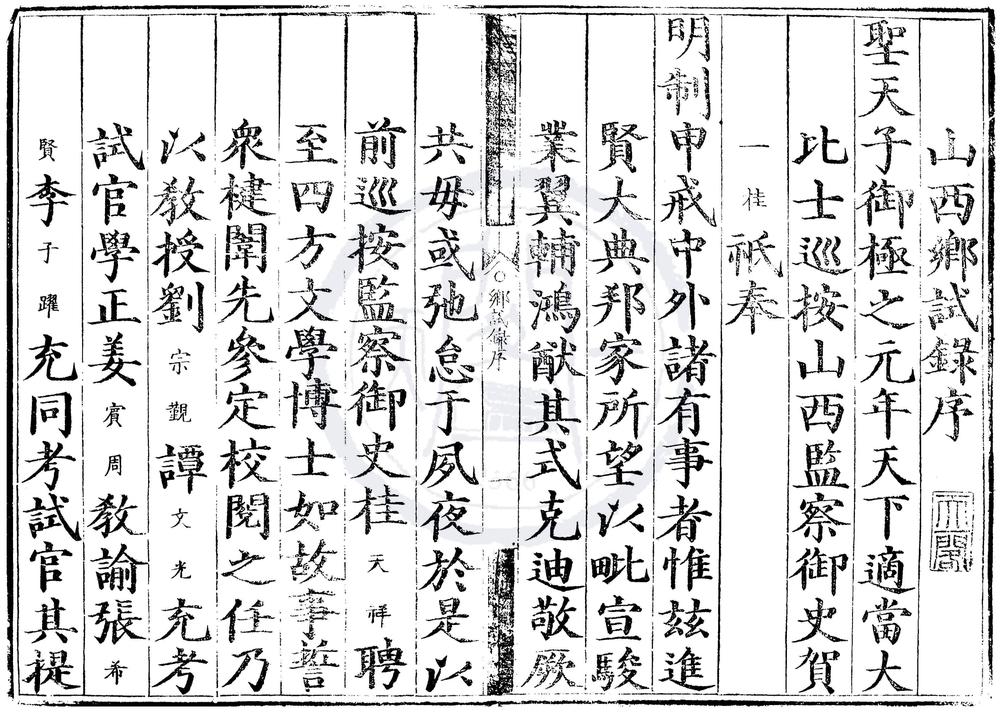 山西鄉試錄序
聖天子御極之元年天下適當大
比士巡按山西監察御史賀
一桂祇奉
明制申戒中外諸有事者惟茲進
賢大典邦家所望以毗宣駿
業翼輔鴻猷其式克迪敬厥
鄉試錄序 一
共毋或弛怠于夙夜於是以
前巡按監察御史桂天祥聘
至四方文學博士如故事誓
衆楗闈先參定校閱之任乃
以教授劉宗觀譚文光充考
試官學正姜賓周教諭張希
賢李子躍充同考試官其提